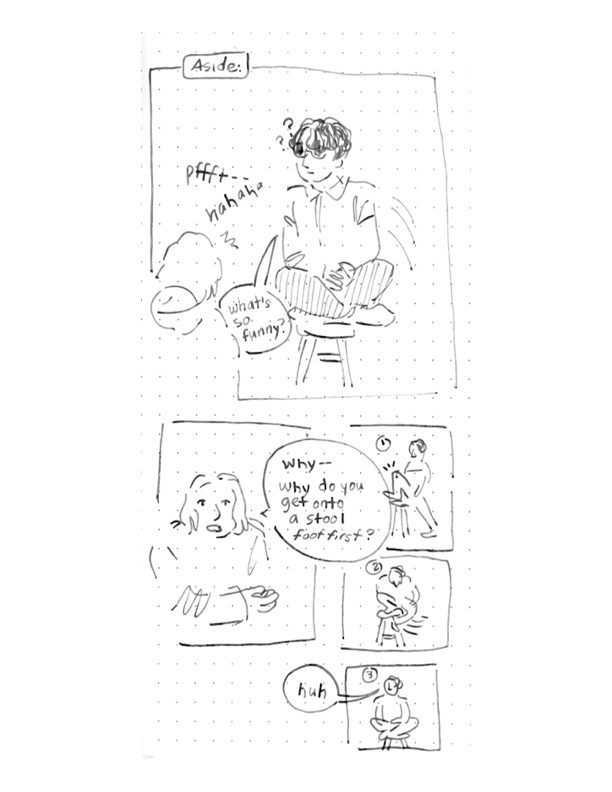 Aside:
? ?
?
pfft--
hahaha
what's
so
funny?
why--
why do you
get onto
a stool
foot first?
1
2
3
huh